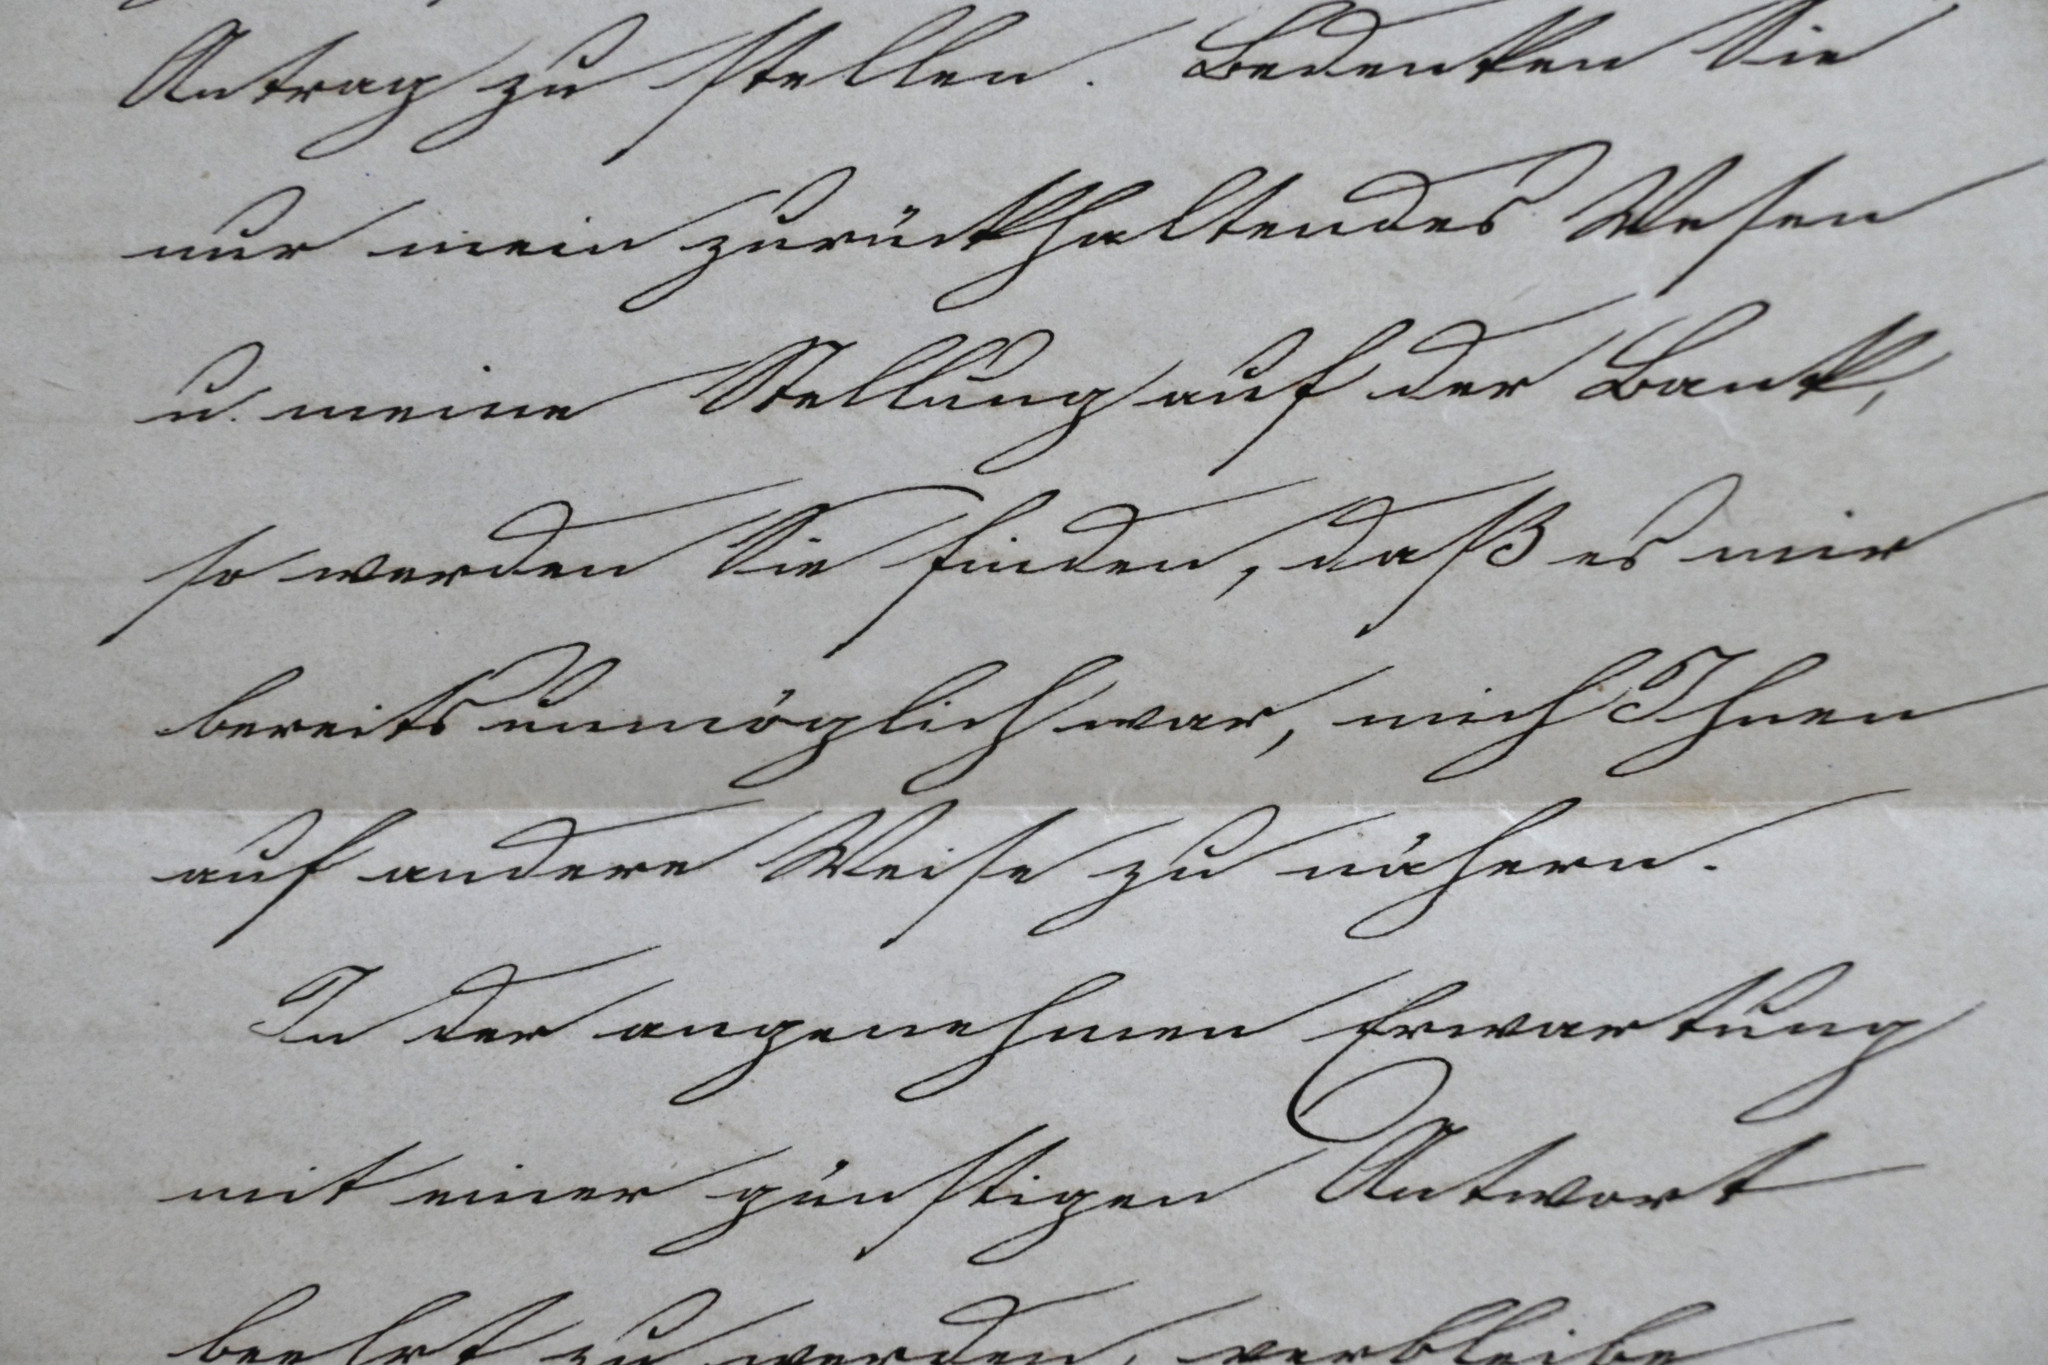 Antrag zu stellen. Bedenken Sie
nur mein zurückhaltendes Wesen
u. meine Stellung auf der Bank,
so werden Sie finden, daß es mir
bereits unmöglich war, mich Ihnen
auf andere Weise zu nähern.
In der angenehmen Erwartung
mit einer günstigen Antwort
beehrt zu werden, verbleibe